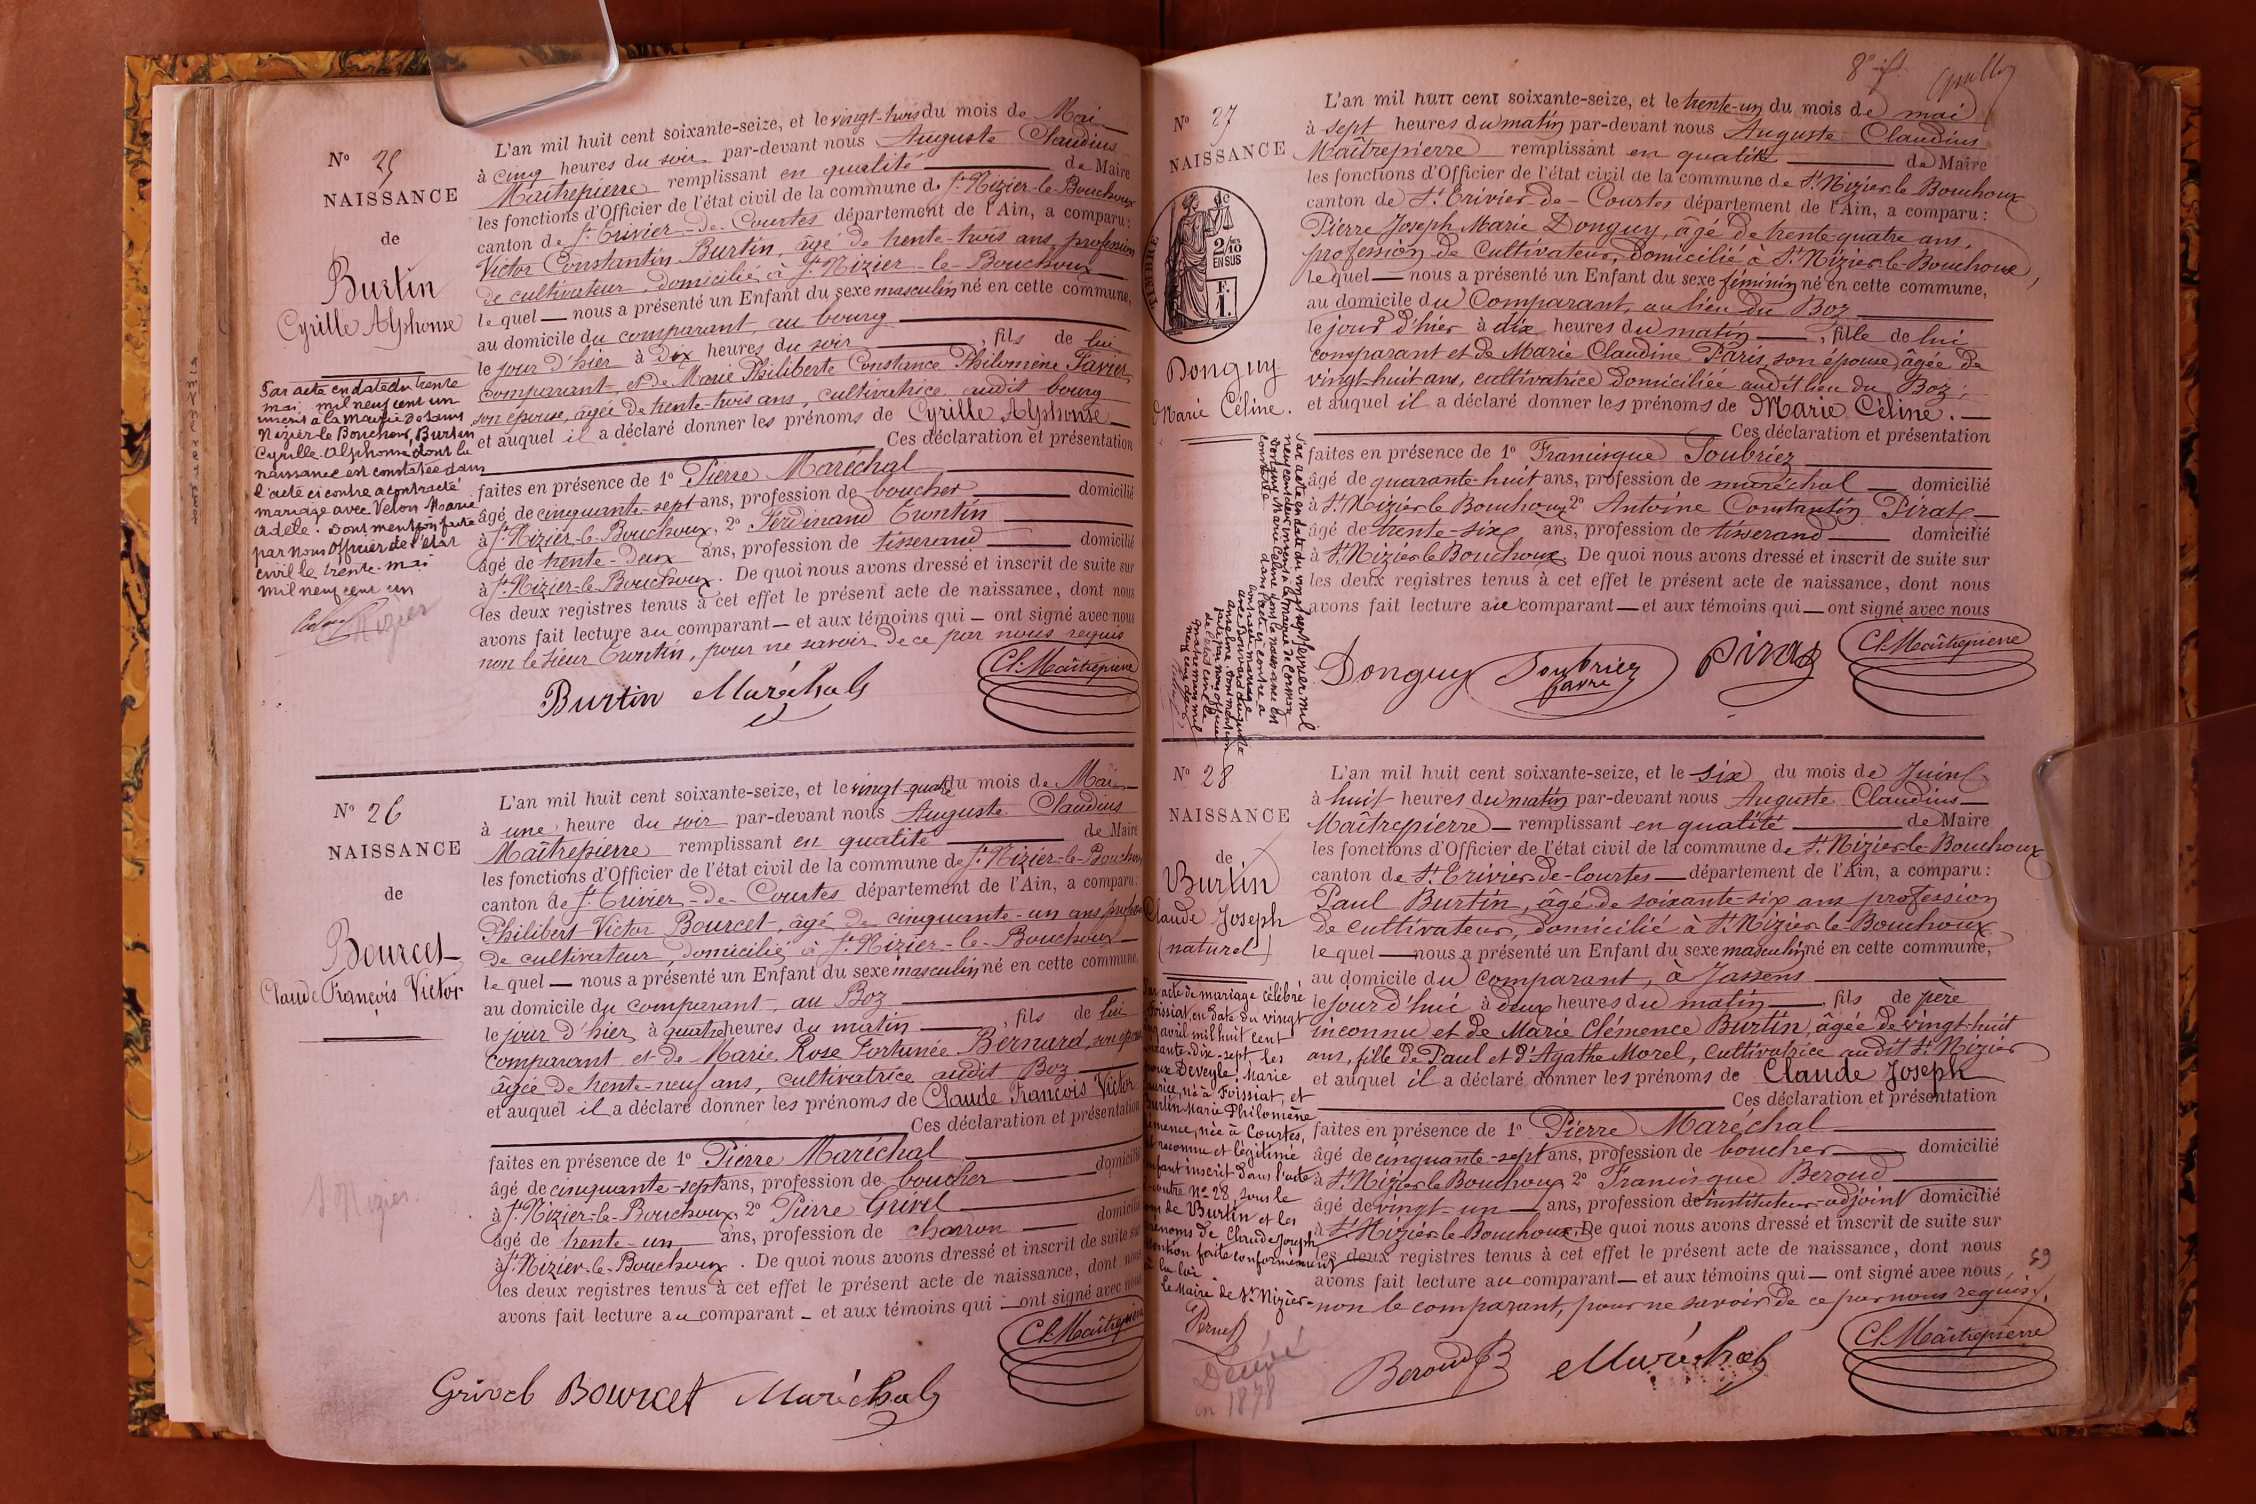 Nº 25
NAISSANCE
de
Burtin
Cyrille Alphonse
Par acte en date du trente
mai mil neuf cent un
inscrit à la Mairie de Saint
Nizier-le-Bouchoux, Burtin
Cyrille Alphonse dont la
naissance est constatée dans
l'acte ci contre a contracté
mariage avec Velon Marie
Adèle. Dont mention faite
par nous Officier de l'état
civil le trente mai
mil neuf cent un
L'an mil huit cent soixante-seize, et le vingt-trois du mois de Mai
à cinq heures du soir par-devant nous Auguste Claudius
Maîtrepierre remplissant en qualité de Maire
les fonctions d'Officier de l'état civil de la commune de St Nizier-le-Bouchoux
canton de St Trivier-de-Courtes département de l'Ain, a comparu:
Victor Constantin Burtin, âgé de trente-trois ans, profession
de cultivateur domicilié à St Nizier-le-Bouchoux
lequel nous a présenté un Enfant du sexe masculin né en cette commune,
au domicile du comparant, au bourg
le jour d'hier à Dix heures du soir, fils de lui
comparant et de Marie Philiberte Constance Philomène Favier,
son épouse, âgée de trente-trois ans, cultivatrice audit bourg
et auquel il a déclaré donner les prénoms de Cyrille Alphonse
Ces déclaration et présentation
faites en présence de 1º Pierre Maréchal
âgé de cinquante-sept ans, profession de boucher domicilié
à St Nizier-le-Bouchoux, 2º Ferdinand Trontin
âgé de trente-deux ans, profession de tisserand domicilié
à St Nizier-le-Bouchoux. De quoi nous avons dressé et inscrit de suite sur
les deux registres tenus à cet effet le présent acte de naissance, dont nous
avons fait lecture au comparant et aux témoins qui ont signé avec nous
non le sieur Trontin, pour ne savoir de ce par nous requis
Burtin Maréchal Cl. Maîtrepierre
Nº 26
NAISSANCE
de
Bourcet
Claude François Victor
St Nizier.
L'an mil huit cent soixante-seize, et le vingt-quatre du mois de Mai
à une heure du soir par-devant nous Auguste Claudius
Maîtrepierre remplissant en qualité de Maire
les fonctions d'Officier de l'état civil de la commune de St Nizier-le-Bouchoux
canton de St Trivier-de-Courtes département de l'Ain, a comparu:
Philibert Victor Bourcet, âgé de cinquante-un ans, profession
de cultivateur, domicilié à St Nizier-le-Bouchoux
lequel nous a présenté un Enfant du sexe masculin né en cette commune,
au domicile du comparant, au Boz
le jour d'hier à quatre heures du matin, fils de lui
comparant et de Marie Rose Fortunée Bernard, son épouse
âgée de trente-neuf ans, cultivatrice audit Boz
et auquel il a déclaré donner les prénoms de Claude François Victor
Ces déclaration et présentation
faites en présence de 1º Pierre Maréchal
âgé de cinquante-sept ans, profession de boucher domicilié
à St Nizier-le-Bouchoux, 2º Pierre Grivel
âgé de trente-un ans, profession de charron domicilié
à St Nizier-le-Bouchoux. De quoi nous avons dressé et inscrit de suite sur
les deux registres tenus à cet effet le présent acte de naissance, dont nous
avons fait lecture au comparant et aux témoins qui ont signé avec nous
Cl. Maîtrepierre
Grivel Bourcet Maréchal
8e f.
Nº 27
NAISSANCE
TIMBRE
de
2/10 EN SUS
F.
1.
Donguy
Marie Céline.
L'an mil huit cent soixante-seize, et le trente-un du mois de mai
à sept heures du matin par-devant nous Auguste Claudius
Maîtrepierre remplissant en qualité de Maire
les fonctions d'Officier de l'état civil de la commune de St Nizier-le-Bouchoux
canton de St Trivier-de-Courtes département de l'Ain, a comparu:
Pierre Joseph Marie Donguy, âgé de trente-quatre ans,
profession de cultivateur, domicilié à St Nizier-le-Bouchoux,
lequel nous a présenté un Enfant du sexe féminin né en cette commune,
au domicile du Comparant, au lieu du Boz
le jour d'hier à dix heures du matin, fille de lui
comparant et de Marie Claudine Paris son épouse, âgée de
vingt-huit ans, cultivatrice domiciliée audit lieu du Boz;
et auquel il a déclaré donner les prénoms de Marie Céline.
Ces déclaration et présentation
faites en présence de 1º Francisque Joubriez
âgé de quarante-huit ans, profession de maréchal domicilié
à St Nizier le Bouchoux 2º Antoine Constantin Pirat
âgé de trente-six ans, profession de tisserand domicilié
à St Nizier le Bouchoux De quoi nous avons dressé et inscrit de suite sur
les deux registres tenus à cet effet le présent acte de naissance, dont nous
avons fait lecture au comparant et aux témoins qui ont signé avec nous
Donguy Joubriez Pirat Cl. Maîtrepierre
Favre
Par acte en date du vingt sept février mil
neuf cent deux inscrit à la mairie de Cormoz
Donguy Marie Céline dont la naissance est
constatée dans l'acte ci contre a
contracté mariage
avec Bouvard Auguste
Anselme dont mention
faite par nous officier
de l'état civil le
quatre mars mil
neuf cent deux
Nº 28
NAISSANCE
de
Burtin
Claude Joseph
(naturel)
Par acte de mariage célébré
Foissiat, en date du vingt
avril mil huit cent
soixante-dix-sept, les
époux Deveyle, Marie
né à Foissiat, et
Burtin Marie Philomène
Clémence, née à Courtes,
ont reconnu et légitimé
l'enfant inscrit dans l'acte
ci contre Nº 28, sous le
nom de Burtin et les
prénoms de Claude Joseph
Mention faite conformément
à la loi
Le Maire de St Nizier
Pernet
Décédé
en 1878
L'an mil huit cent soixante-seize, et le six du mois de Juin
à huit heures du matin par-devant nous Auguste Claudius
Maîtrepierre remplissant en qualité de Maire
les fonctions d'Officier de l'état civil de la commune de St Nizier-le-Bouchoux
canton de St Trivier-de-Courtes département de l'Ain, a comparu:
Paul Burtin, âgé de soixante-six ans profession
de cultivateur, domicilié à St Nizier-le-Bouchoux
lequel nous a présenté un Enfant du sexe masculin né en cette commune,
au domicile du comparant, à Jassens
le jour d'hui à deux heures du matin, fils de père
inconnu et de Marie Clémence Burtin, âgée de vingt-huit
ans, fille de Paul et d'Agathe Morel, cultivatrice audit St Nizier
et auquel il a déclaré donner les prénoms de Claude Joseph
Ces déclaration et présentation
faites en présence de 1º Pierre Maréchal
âgé de cinquante-sept ans, profession de boucher domicilié
à St Nizier le Bouchoux 2º Francisque Beroud
âgé de vingt-un ans, profession de instituteur-adjoint domicilié
à St Nizier-le-Bouchoux. De quoi nous avons dressé et inscrit de suite sur
les deux registres tenus à cet effet le présent acte de naissance, dont nous
avons fait lecture au comparant et aux témoins qui ont signé avec nous,
non le comparant, pour ne savoir de ce par nous requis.
59
Beroud Maréchal Cl. Maîtrepierre